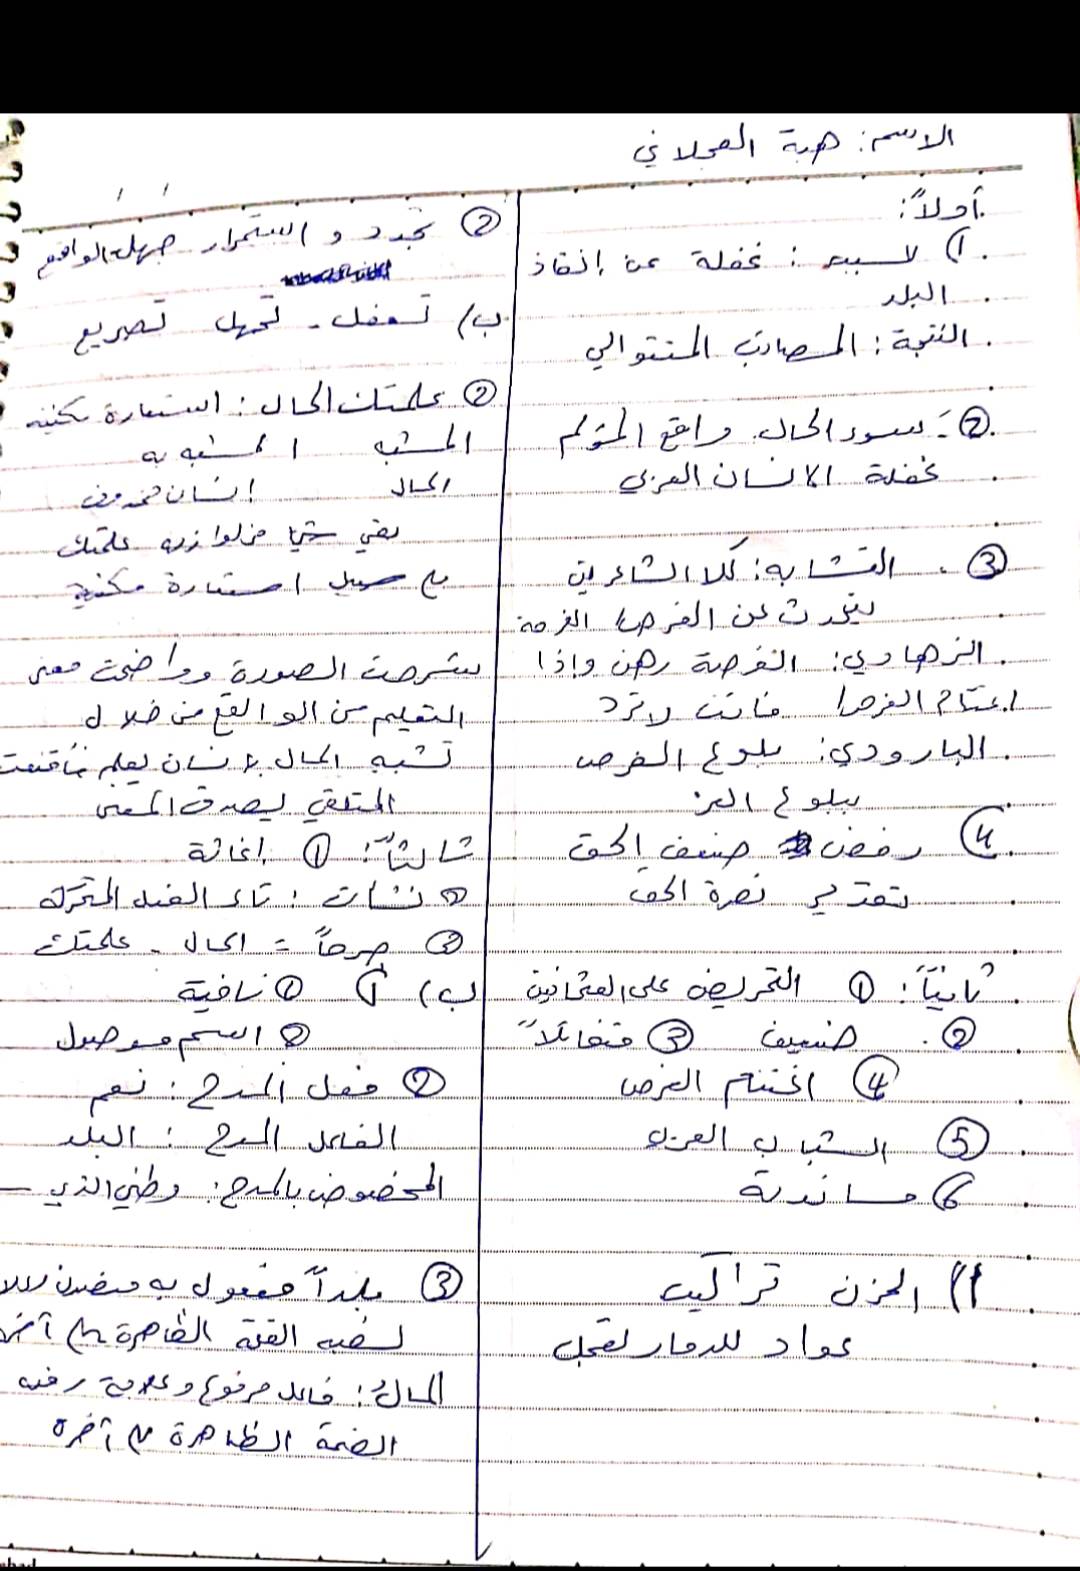 الاسم: هبة العجلاني
أولاً:
1) السبب: غفلة عن إنقاذ
البلد
النتجة: المصائب المتتوالي
2- سود الحال واقع المؤلم
غفلة الانسان العربي
3 التشابه: كلا الشاعرين
يتحدث عن الفرص
الزهاوي: الفرصة رهن وإذا
اغتنام الفرص فاتت لا ترد
البارودي: بلوغ الفرص
ببلوغ العز
4 رفض ضعف الحق
تقدير نصرة الحق
ثانياً: 1 التحريض على
2. ضعيف 3 متفائلاً
4 اغتنام الفرص
5 الشباب العربي
6 مساندة
أ) الحزن تراكيب
عواد للدمار لعجل
2 تجدد و استمرار جهل الواقع
ب/ تغفل - تجهل تصريع
2 علمتك الحال: استعارة مكنية
المشبه المشبه به
الحال إنسان محذوف
بقي شيئا من لوازمه علمتك
على سبيل استعارة مكنية
شرحت الصورة ووضحت معنى
التعليم من الواقع من خلال
تشبه الحال بإنسان يعلم فأقنعت
المتلقي ليصدق المعنى
ثالثاً: 1 إغاثة
2 نشات: تاء الفعل المتحركة
3 جرحاً = الحال - علمتك
ب) أ 1 نافية
2 اسم موصول
2 فعل المدح: نعم
الفاعل المدح: البلد
المخصوص بالمدح: وطني الذي -
3 بلداً مفعول به منصوب وعلا
نصبه الفتحة الظاهرة على آخره
المالُ: فاعل مرفوع وعلامة رفعه
الضمة الظاهرة على آخره